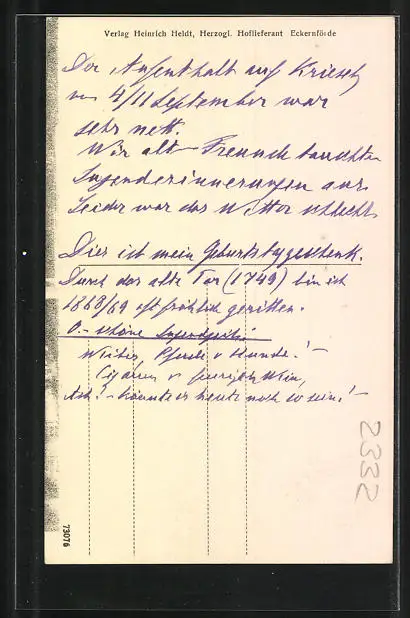 Verlag Heinrich Heldt, Herzogl. Hoflieferant Eckernförde
Der Aufenthalt auf
4/11 September war
sehr nett.
Wir alte Freunde tauschten
Jugenderinnerungen aus.
Leider war das Wetter schlecht.
Dies ist mein Geburtstagsgeschenk.
Durch das alte Tor (1749) bin ich
1868/69 oft fröhlich geritten.
O.- schöne Jugendzeit!
Weiber, Pferde u Hunde! -
Cigarren u Wein,
Ach! - könnte es heute noch so sein! -
2332
73076